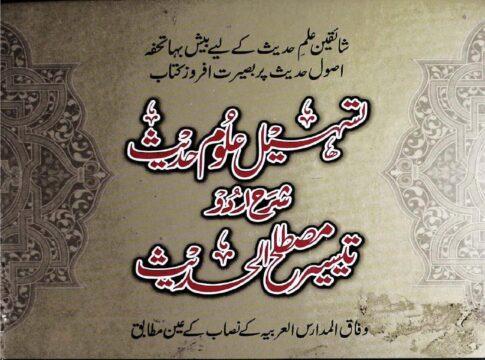 شائقین علمِ حدیث کے لیے بیش بہا تحفہ
اصول حدیث پر بصیرت افروز کتاب
تسہیل علوم حدیث
شرح اردو
تیسیر مصطلح الحدیث
وفاق المدارس العربیہ کے نصاب کے عین مطابق